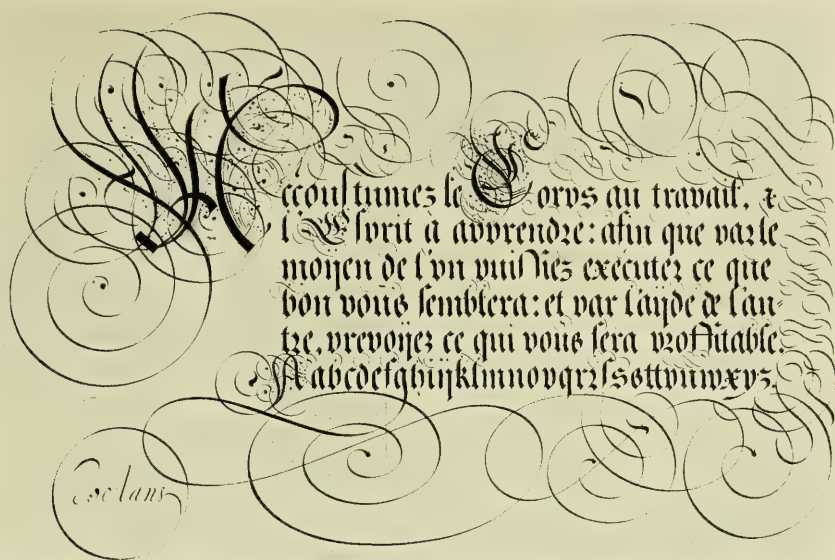 Accoustumez le Corps au travail, &
l'Esprit à apprendre: afin que par le
moyen de l'un puissiez executer ce que
bon vous semblera: et par l'ayde de l'au-
tre, prevoyez ce qui vous sera proffitable.
A a b c d e f g h i ij k l m n o p q r